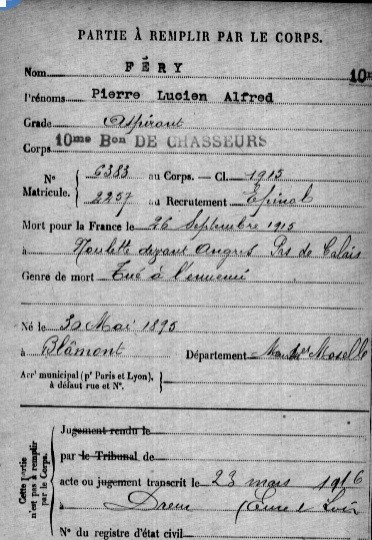 PARTIE À REMPLIR PAR LE CORPS.
Nom FÉRY
Prénoms Pierre Lucien Alfred
Grade Aspirant
Corps 10me Bon DE CHASSEURS
N° Matricule. { 6383 au Corps. — Cl. 1915
2257 au Recrutement Epinal
Mort pour la France le 26 Septembre 1915
à Noulette devant Angres Pas de Calais
Genre de mort Tué à l'ennemi
Né le 30 Mai 1895
à Blâmont Département Mthe et Moselle
Arrt municipal (pr Paris et Lyon), à défaut rue et N°.
Cette Partie n'est pas à remplir par le Corps.
Jugement rendu le
par le Tribunal de
acte ou jugement transcrit le 23 mars 1916
à Dreux (Eure et Loir
N° du registre d'état civil